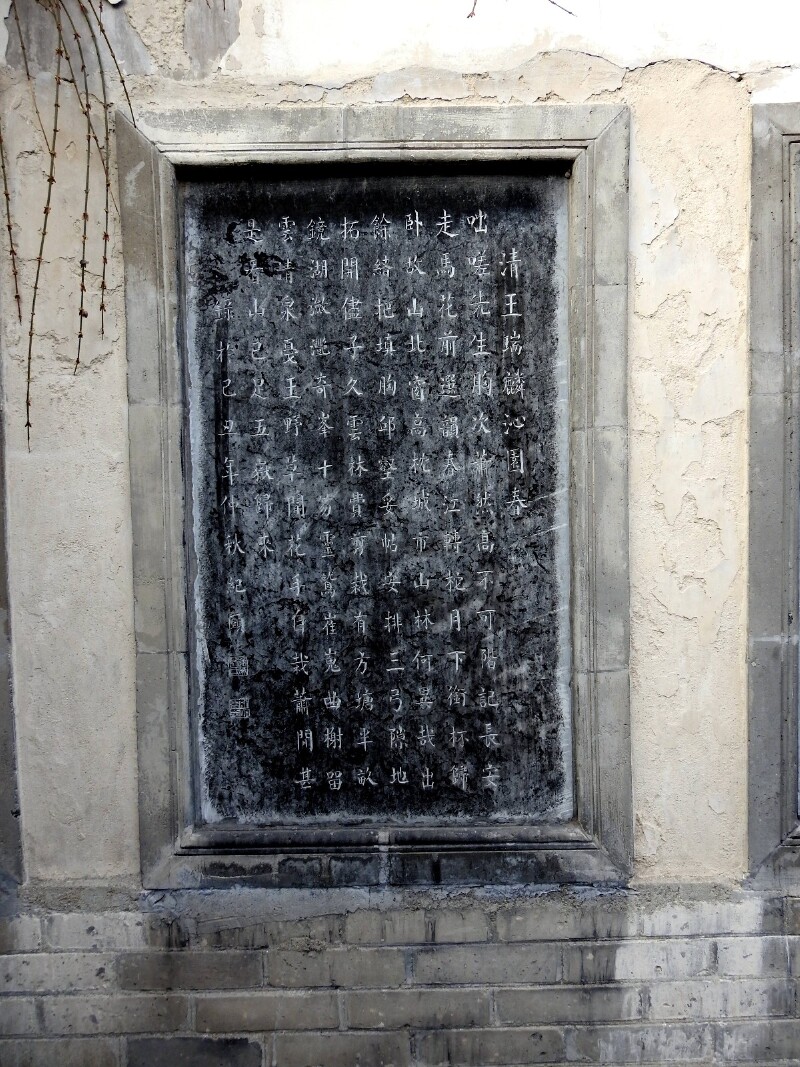 清王瑞麟沁園春
咄嗟先生胸次蕭然高不可階記長安
走馬花前選韻春江轉柁月下銜杯歸
卧故山北窗高枕城市山林何異哉出
餘緒把填胸邱壑妥帖安排三弓隙地
拓開儘子久雲林費剪裁有方塘半畝
鏡湖潋灩奇峯十笏靈鷲崔嵬曲榭留
雲清泉戛玉野草閒花手自栽蕭閒甚
是看山已足五嶽歸來
錄於己丑年仲秋紀